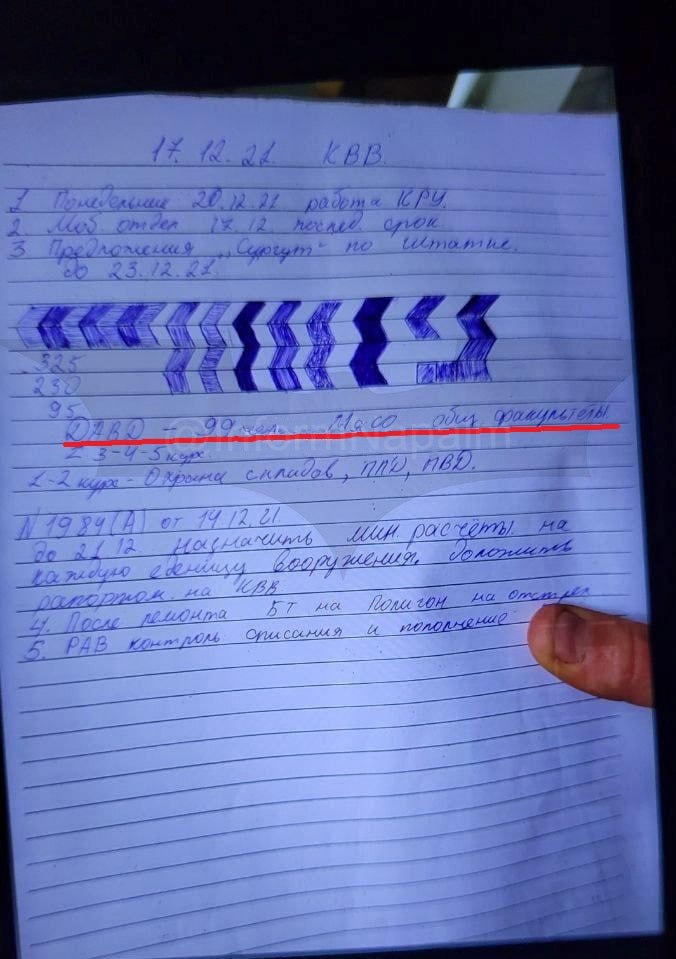 17. 12. 21 КВВ.
1. Понедельник 20.12.21 работа КРУ.
2. Моб отдел 17.12. послед. срок
3. Предложения „Сургут" по штатке.
до 23.12.21.
325
230
95
- 99 чел. общ факультеты
3-4-5 курс
1-2 курс - Охрана складов, ППД, ПВД.
N 1984(А) от 14.12.21
до 21.12. назначить мин. расчёты на
каждую единицу вооружения. Доложить
рапортом на КВВ
4. После ремонта БТ на Полигон на отстрел
5. РАВ контроль списания и пополнение